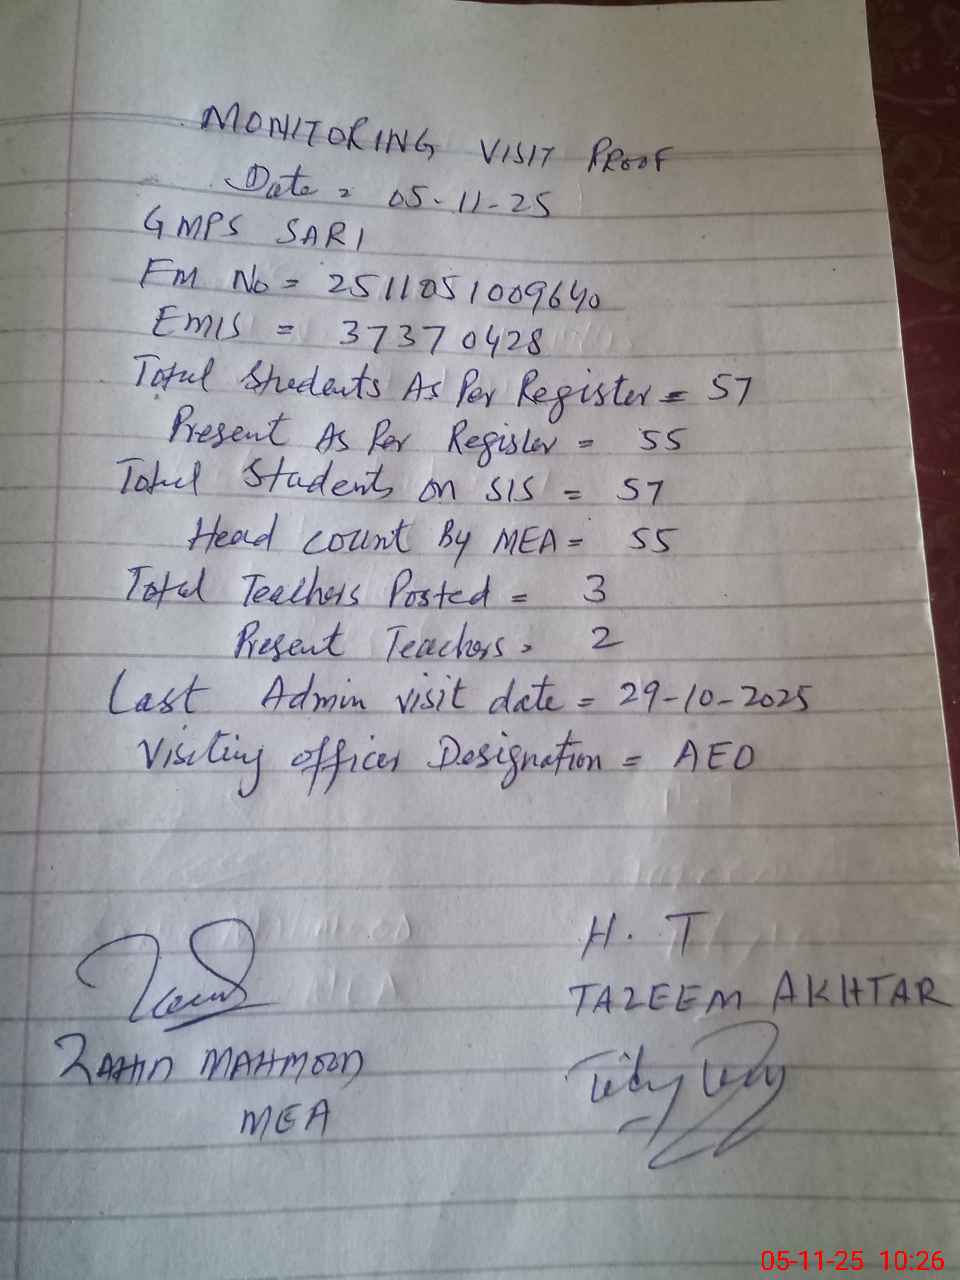 MONITORING VISIT PROOF
Date = 05-11-25
GMPS SARI
FM No = 2511051009640
EMIS = 37370428
Total Students As Per Register = 57
Present As Per Register = 55
Total Students on SIS = 57
Head count By MEA = 55
Total Teachers Posted = 3
Present Teachers = 2
Last Admin visit date = 29-10-2025
Visiting officer Designation = AEO
H. T
TAZEEM AKHTAR
ZAHID MAHMOOD
MEA
05-11-25 10:26